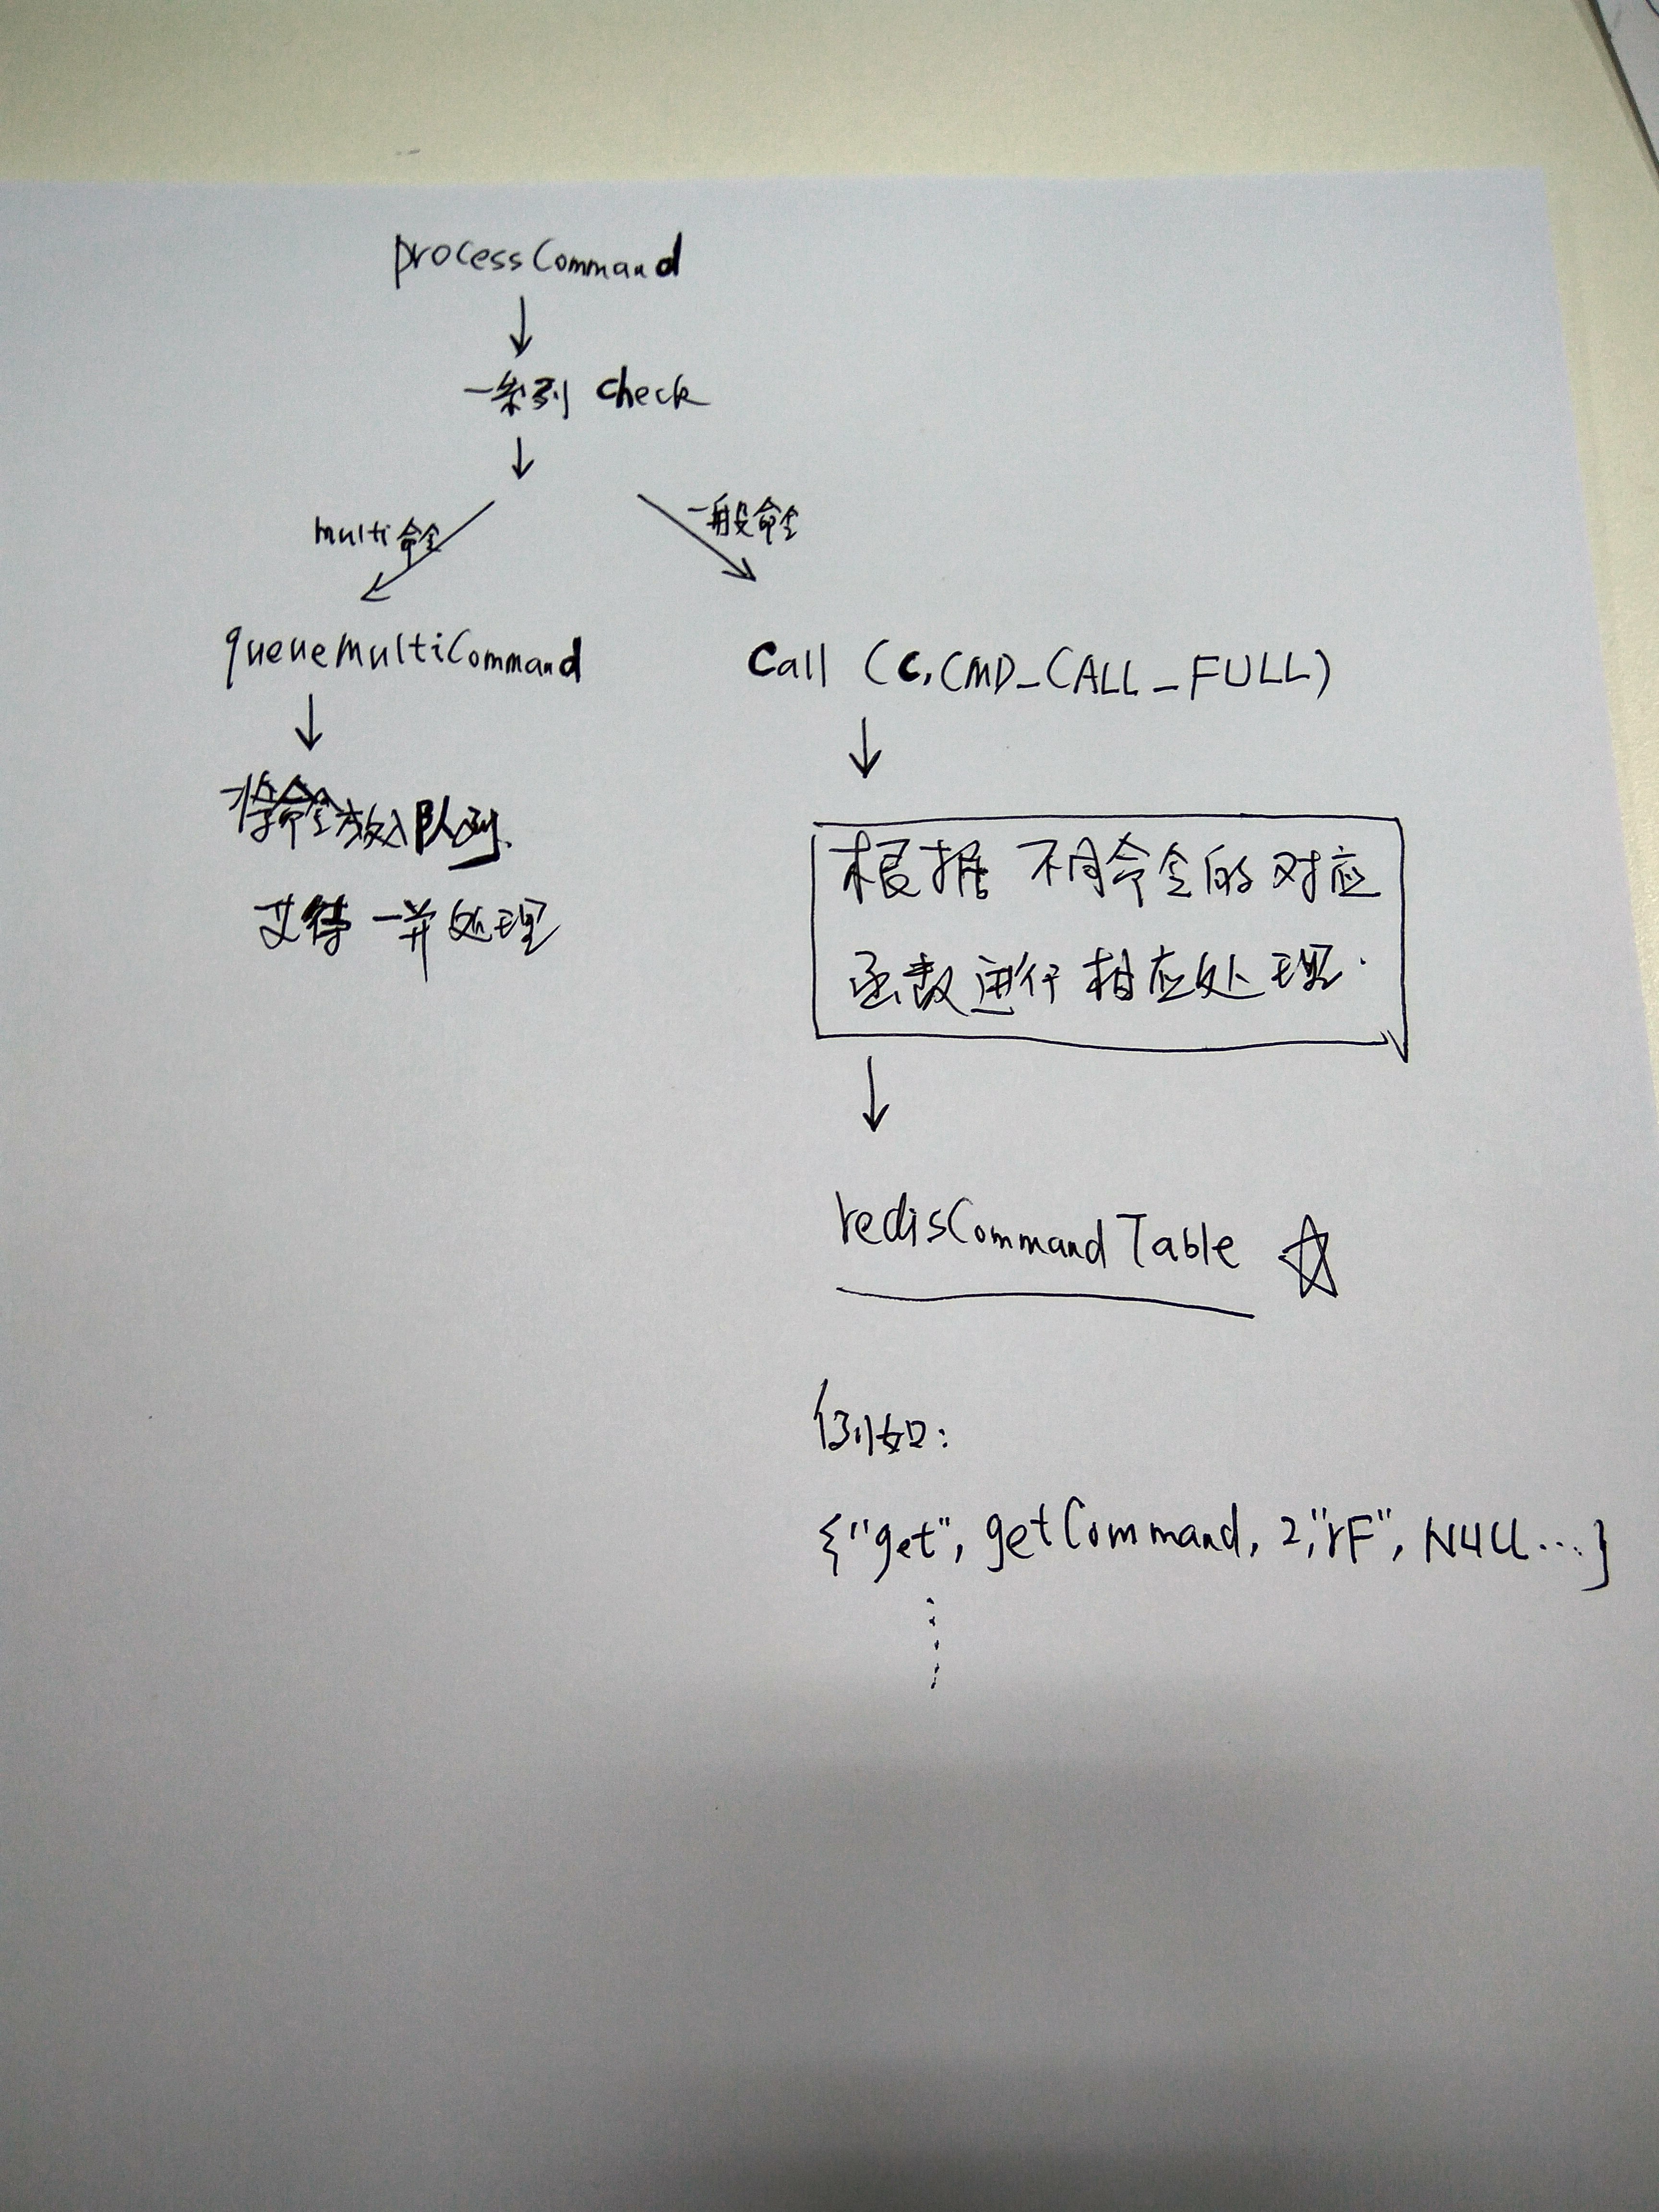 processCommand
一系列 check
multi命令
一般命令
queueMultiCommand
call (c,CMD_CALL_FULL)
将命令放入队列.
等待一并处理
根据不同命令的对应
函数进行相应处理.
redisCommandTable ☆
例如:
{"get", getCommand, 2,"rF", NULL...}